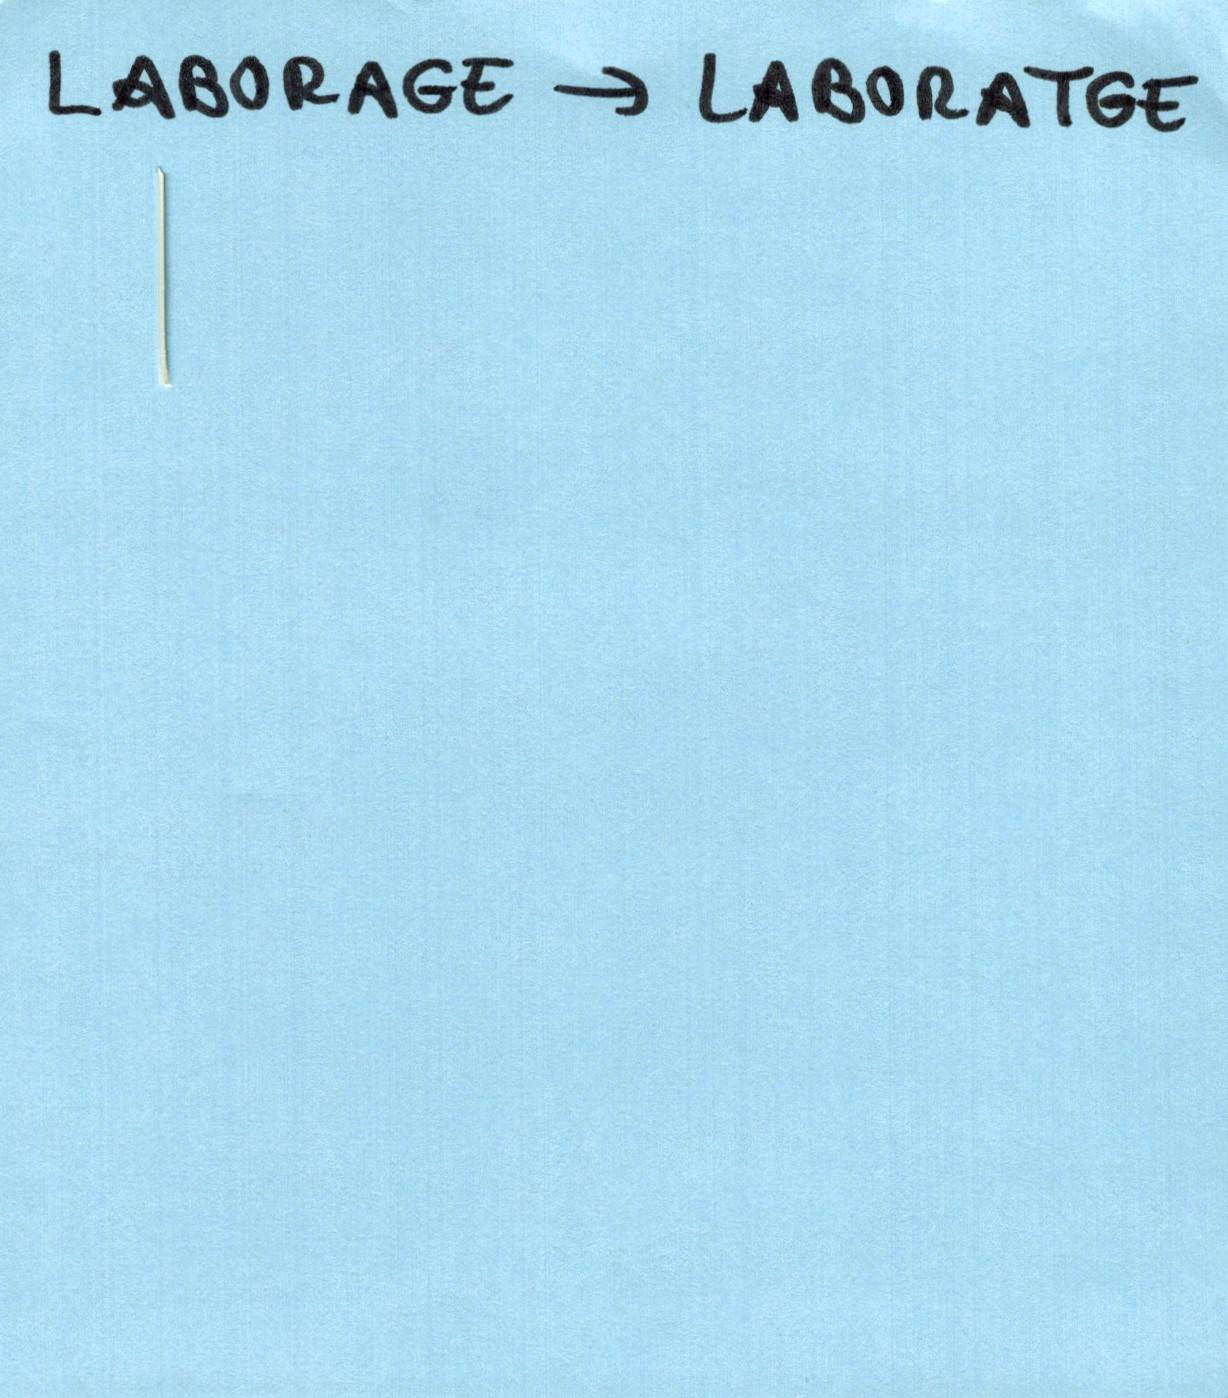 LABORAGE → LABORATGE